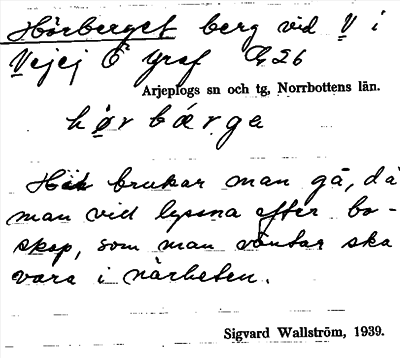 Hörberget berg vid V i
Vejej Ö Graf G, 26
Arjeplogs sn och tg, Norrbottens län.
hør bærge
Hit brukar man gå, då
man vid lyssna efter bo-
skap, som man väntar ska
vara i närheten.
Sigvard Wallström, 1939.